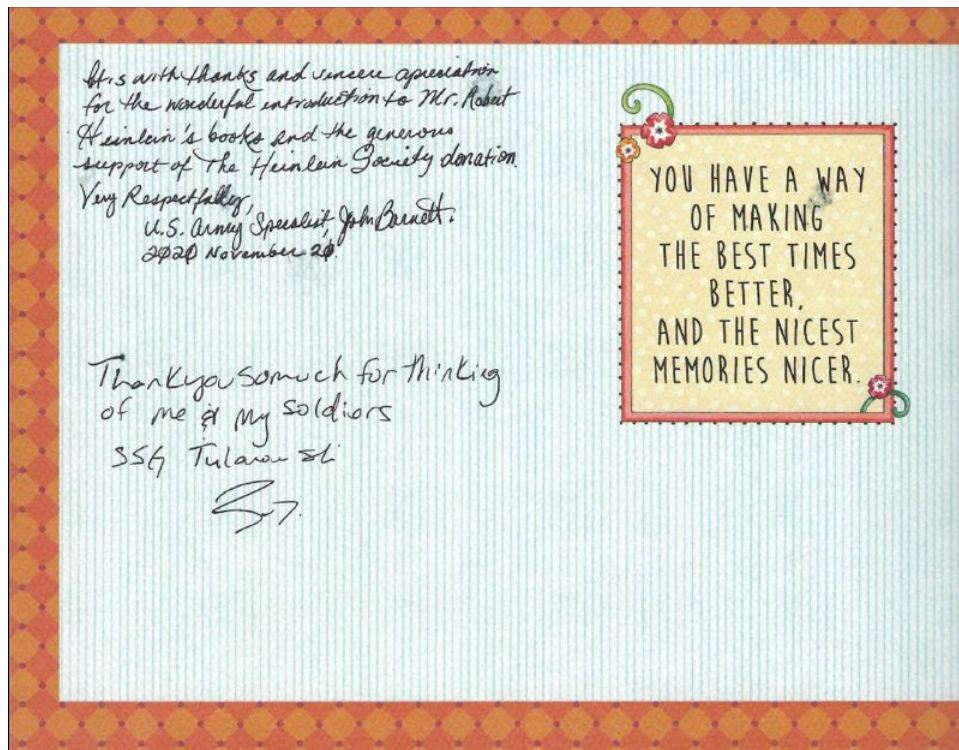 It is with thanks and sincere apreciation
for the wonderful introduction to Mr. Robert
Heinlein's books and the generous
support of The Heinlein Society donation.
Very Respectfully,
U.S. Army Specialist, John Barnett.
2020 November 20.
Thank you so much for thinking
of me & my soldiors
SSG
YOU HAVE A WAY
OF MAKING
THE BEST TIMES
BETTER,
AND THE NICEST
MEMORIES NICER.